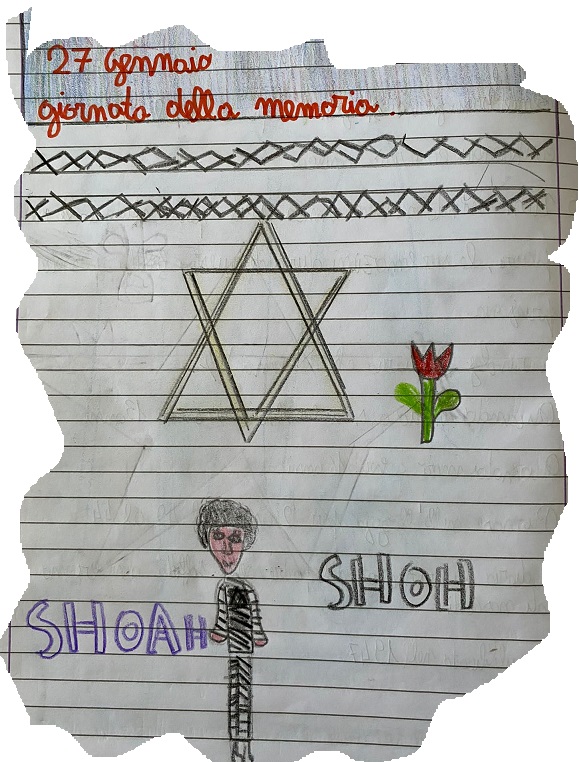 27 Gennaio
giornata della memoria.
SHOAH
SHOH